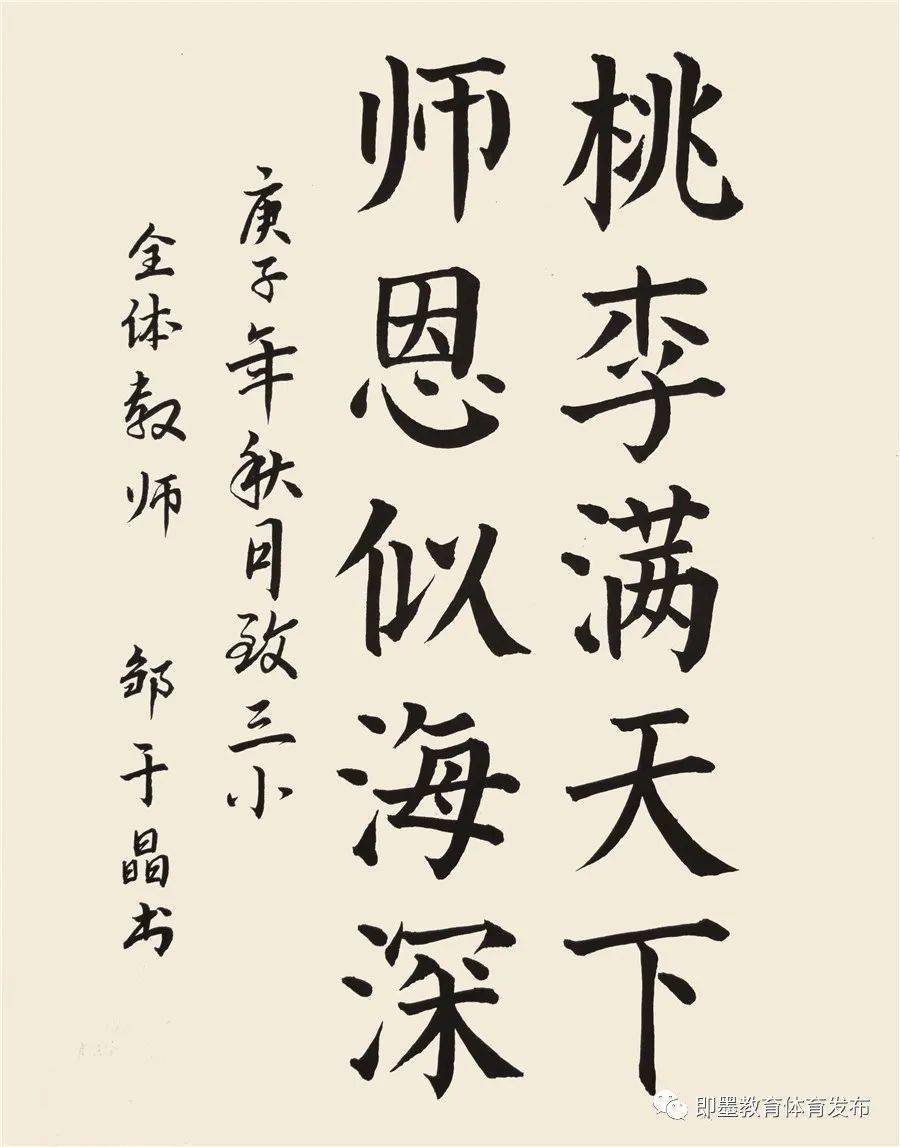 桃李满天下
师恩似海深
庚子年秋月致三小
全体教师 邹于晶书
即墨教育体育发布